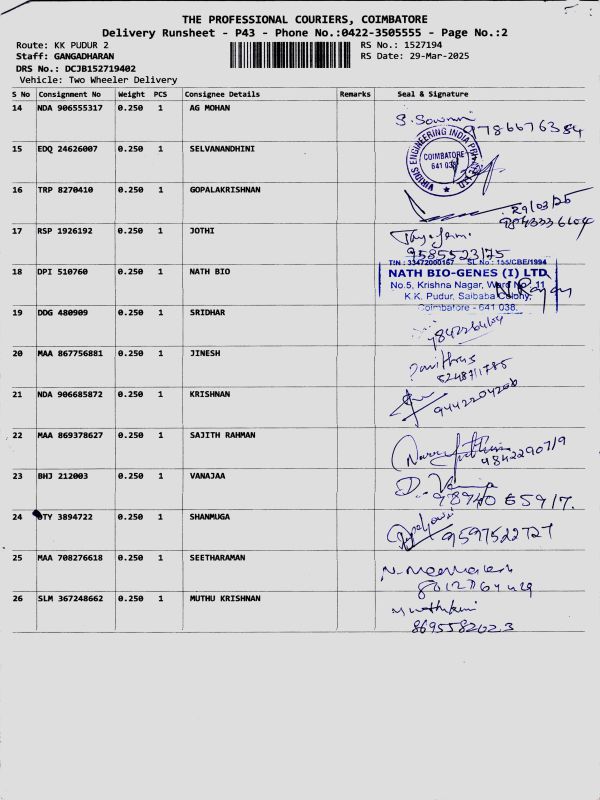 THE PROFESSIONAL COURIERS, COIMBATORE
Delivery Runsheet - P43 - Phone No.:0422-3505555 - Page No.:2
Route: KK PUDUR 2 RS No.: 1527194
Staff: GANGADHARAN RS Date: 29-Mar-2025
DRS No.: DCJB152719402
Vehicle: Two Wheeler Delivery
S No Consignment No Weight PCS Consignee Details Remarks Seal & Signature
14 NDA 906555317 0.250 1 AG MOHAN
9786676384
15 EDQ 24626007 0.250 1 SELVANANDHINI
ENGINEERING INDIA
COIMBATORE
641 038
16 TRP 8270410 0.250 1 GOPALAKRISHNAN
29/03/25
9843336604
17 RSP 1926192 0.250 1 JOTHI
9585523175
18 DPI 510760 0.250 1 NATH BIO
TIN : 33472000167 SL No : 155/CBE/1994
NATH BIO-GENES (I) LTD
No.5, Krishna Nagar, Ward No. 11
K.K. Pudur, Saibaba Colony,
Coimbatore - 641 038.
19 DDG 480909 0.250 1 SRIDHAR
20 MAA 867756881 0.250 1 JINESH
21 NDA 906685872 0.250 1 KRISHNAN
9442204206
22 MAA 869378627 0.250 1 SAJITH RAHMAN
23 BHJ 212003 0.250 1 VANAJAA
9894065917.
24 DTY 3894722 0.250 1 SHANMUGA
9597522727
25 MAA 708276618 0.250 1 SEETHARAMAN
26 SLM 367248662 0.250 1 MUTHU KRISHNAN
8695582023